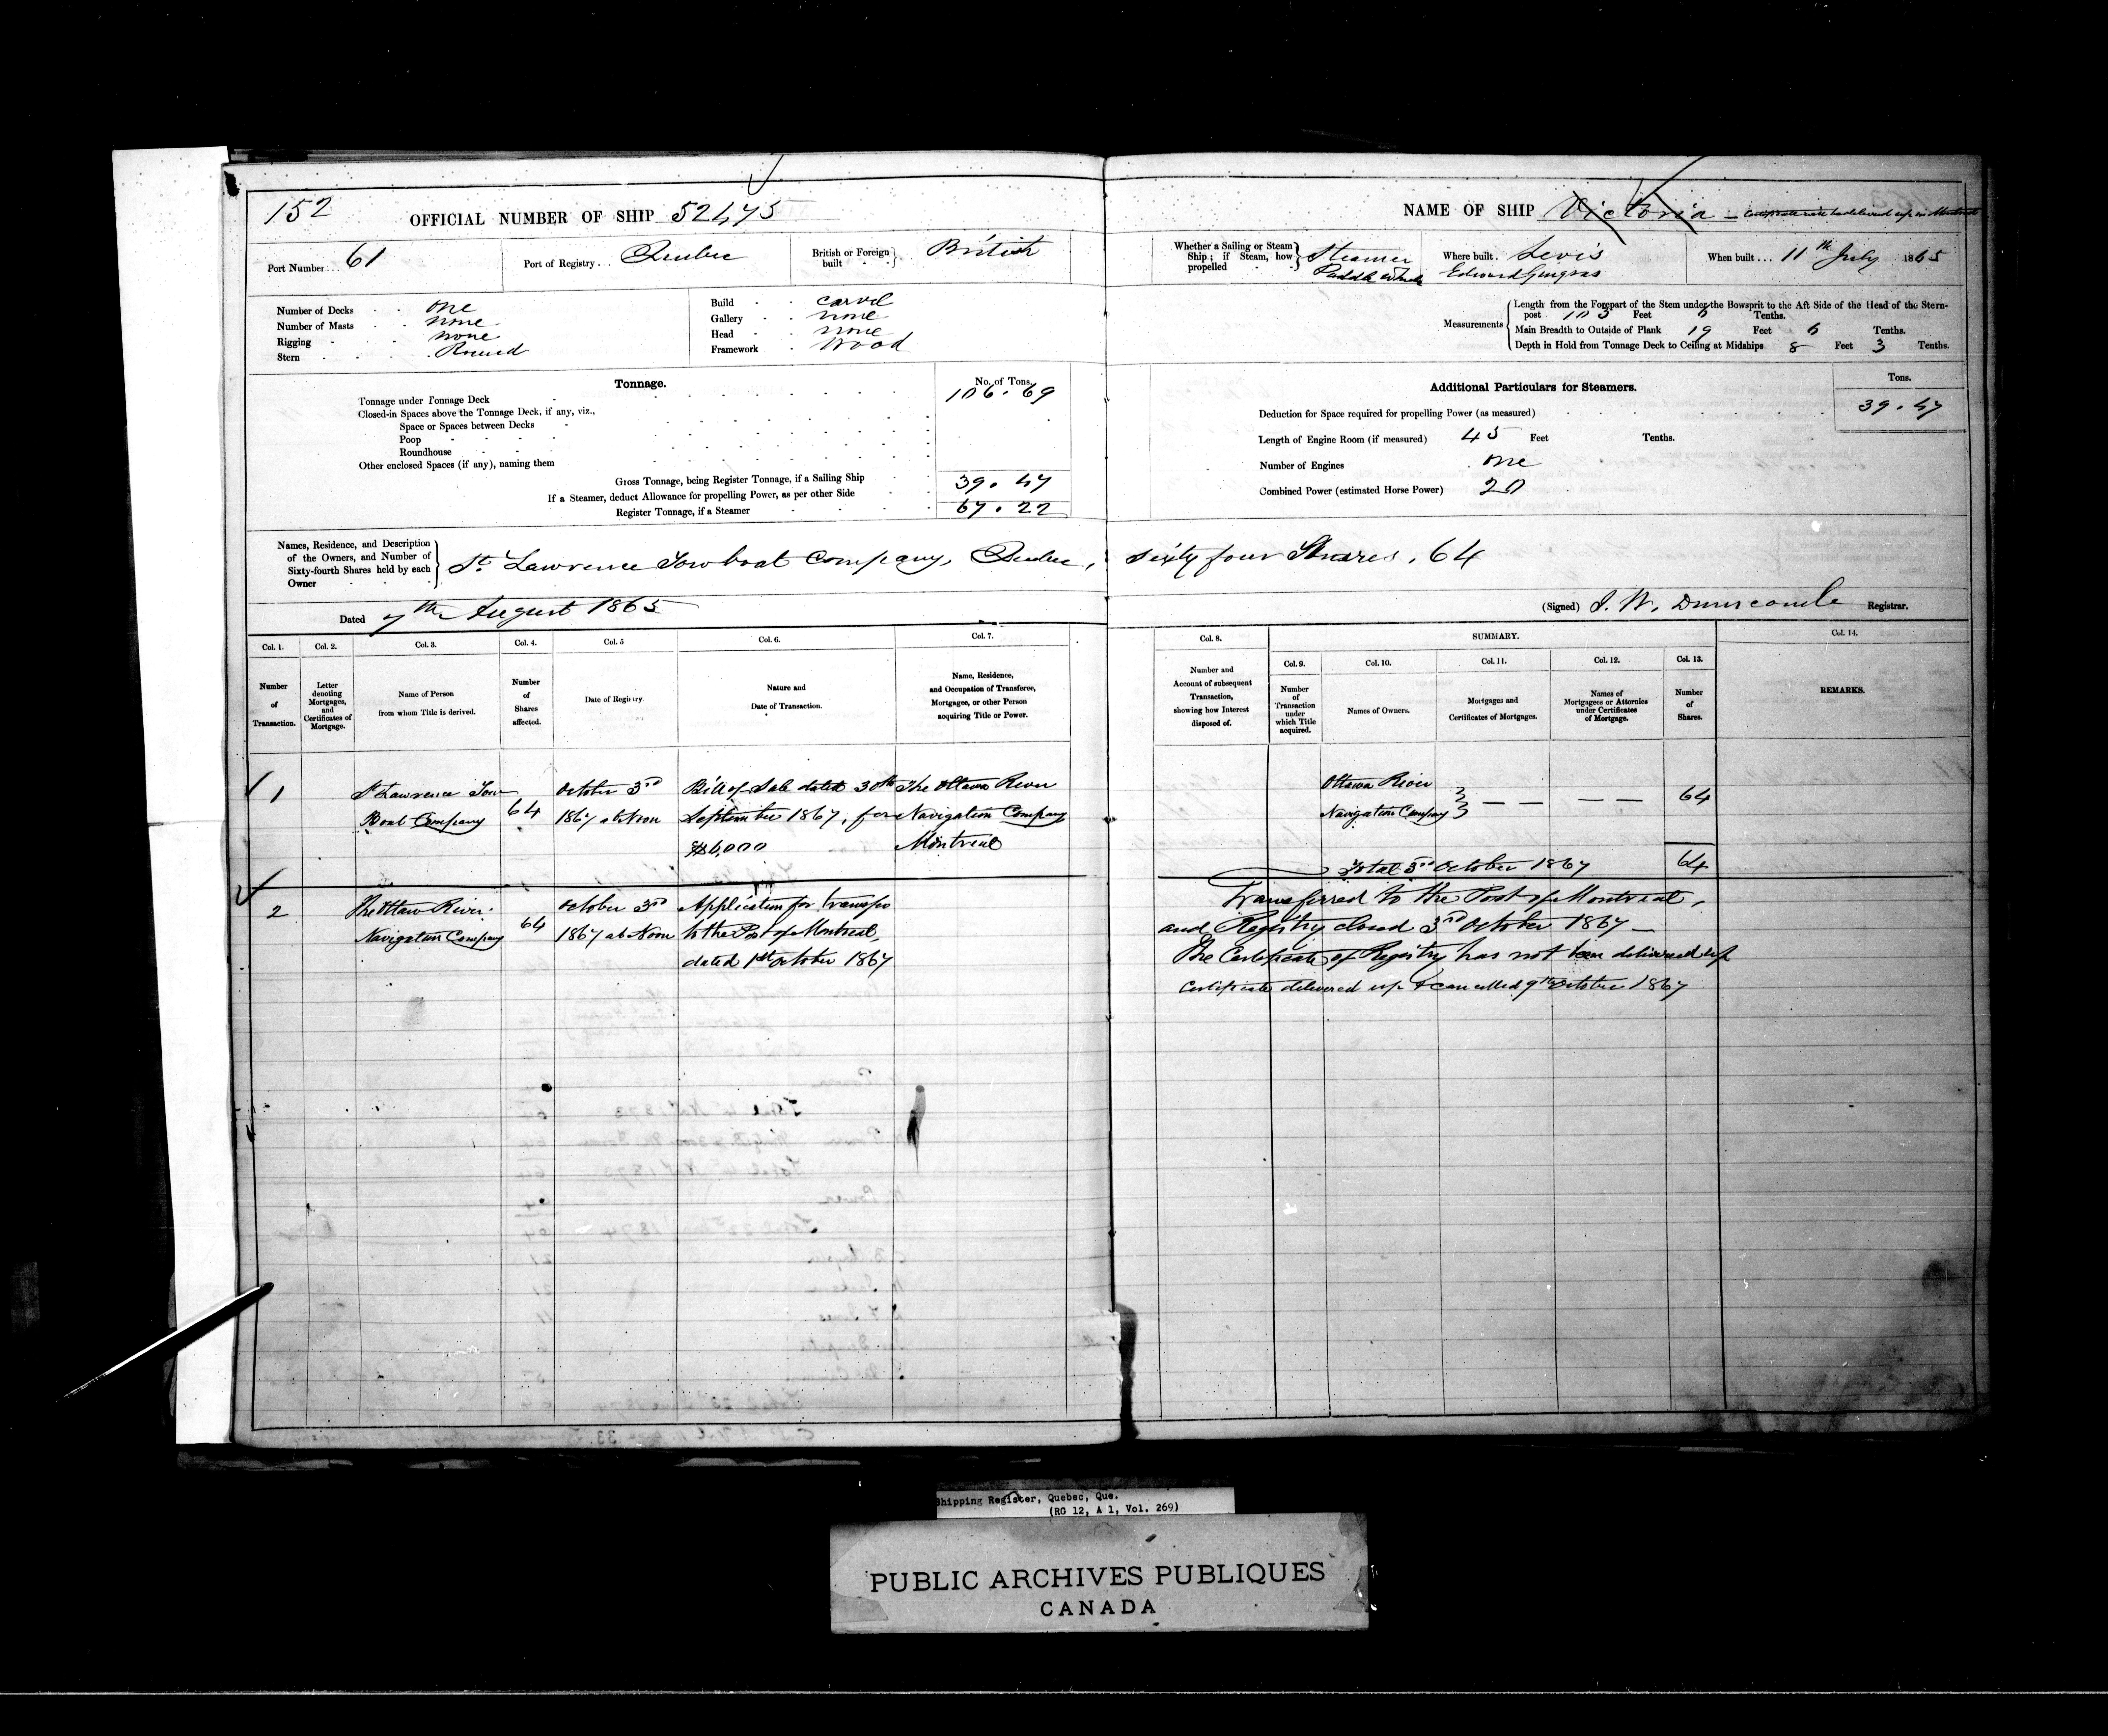 152
OFFICIAL NUMBER OF SHIP 52475
NAME OF SHIP Victoria
Port Number... 61
Port of Registry... Quebec
British or Foreign built British
Whether a Sailing or Steam Ship; if Steam, how propelled Steamer Paddle Wheels
Where built. Levis
Edward Gingras
When built... 11th July 1865
Number of Decks one
Number of Masts none
Rigging none
Stern Round
Build carvel
Gallery none
Head none
Framework Wood
Measurements
Length from the Forepart of the Stem under the Bowsprit to the Aft Side of the Head of the Stern-
post 103 Feet 6 Tenths.
Main Breadth to Outside of Plank 19 Feet 6 Tenths.
Depth in Hold from Tonnage Deck to Ceiling at Midships 8 Feet 3 Tenths.
Tonnage.
No. of Tons.
Tonnage under Tonnage Deck 106.69
Closed-in Spaces above the Tonnage Deck, if any, viz.,
Space or Spaces between Decks
Poop
Roundhouse
Other enclosed Spaces (if any), naming them
Gross Tonnage, being Register Tonnage, if a Sailing Ship
If a Steamer, deduct Allowance for propelling Power, as per other Side 39.47
Register Tonnage, if a Steamer 67.22
Additional Particulars for Steamers.
Tons.
Deduction for Space required for propelling Power (as measured) 39.47
Length of Engine Room (if measured) 45 Feet Tenths.
Number of Engines one
Combined Power (estimated Horse Power) 20
Names, Residence, and Description
of the Owners, and Number of
Sixty-fourth Shares held by each
Owner
St Lawrence Towboat Company, Quebec, sixty four Shares, 64
Dated 7th August 1865
(Signed) J. W. Dunscomb Registrar.
Col. 1. Col. 2. Col. 3. Col. 4. Col. 5 Col. 6. Col. 7.
Number of Transaction.
Letter denoting Mortgages, and Certificates of Mortgage.
Name of Person from whom Title is derived.
Number of Shares affected.
Date of Registry
Nature and Date of Transaction.
Name, Residence, and Occupation of Transferee, Mortgagee, or other Person acquiring Title or Power.
Col. 8. SUMMARY. Col. 14.
Col. 9. Col. 10. Col. 11. Col. 12. Col. 13.
Number and Account of subsequent Transaction, showing how Interest disposed of.
Number of Transaction under which Title acquired.
Names of Owners.
Mortgages and Certificates of Mortgages.
Names of Mortgagees or Attornies under Certificates of Mortgage.
Number of Shares.
REMARKS.
1 St Lawrence Tow October 3rd Bill of Sale dated 30th The Ottawa River
Boat Company 64 1867 at Noon September 1867, for Navigation Company
$6,000 Montreal
Ottawa River
Navigation Company 64
Total 3rd October 1867 64
2 The Ottaw River October 3rd Application for transfer
Navigation Company 64 1867 at Noon to the Port of Montreal,
dated 1st October 1867
Transferred to the Port of Montreal,
and Registry closed 3rd October 1867
The Certificate of Registry has not been delivered up
Certificate delivered up & cancelled 9th October 1867
Shipping Register, Quebec, Que.
(RG 12, A 1, Vol. 269)
PUBLIC ARCHIVES PUBLIQUES
CANADA